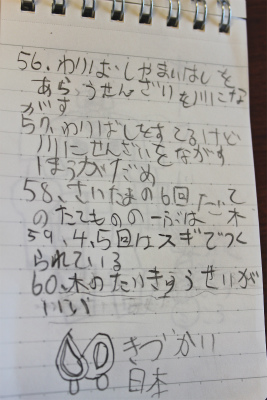 56、わりばしやまいはしを
あらうせんざいを川にな
がす
57、わりばしをすてるけど
川にせんざいをながす
ほうがだめ
58、さいたまの6回だて
のたてものの一ぶは木
59、4、5回はスギでつく
られている
60、木のたいきゅうせいが
いい
きづかい
日本